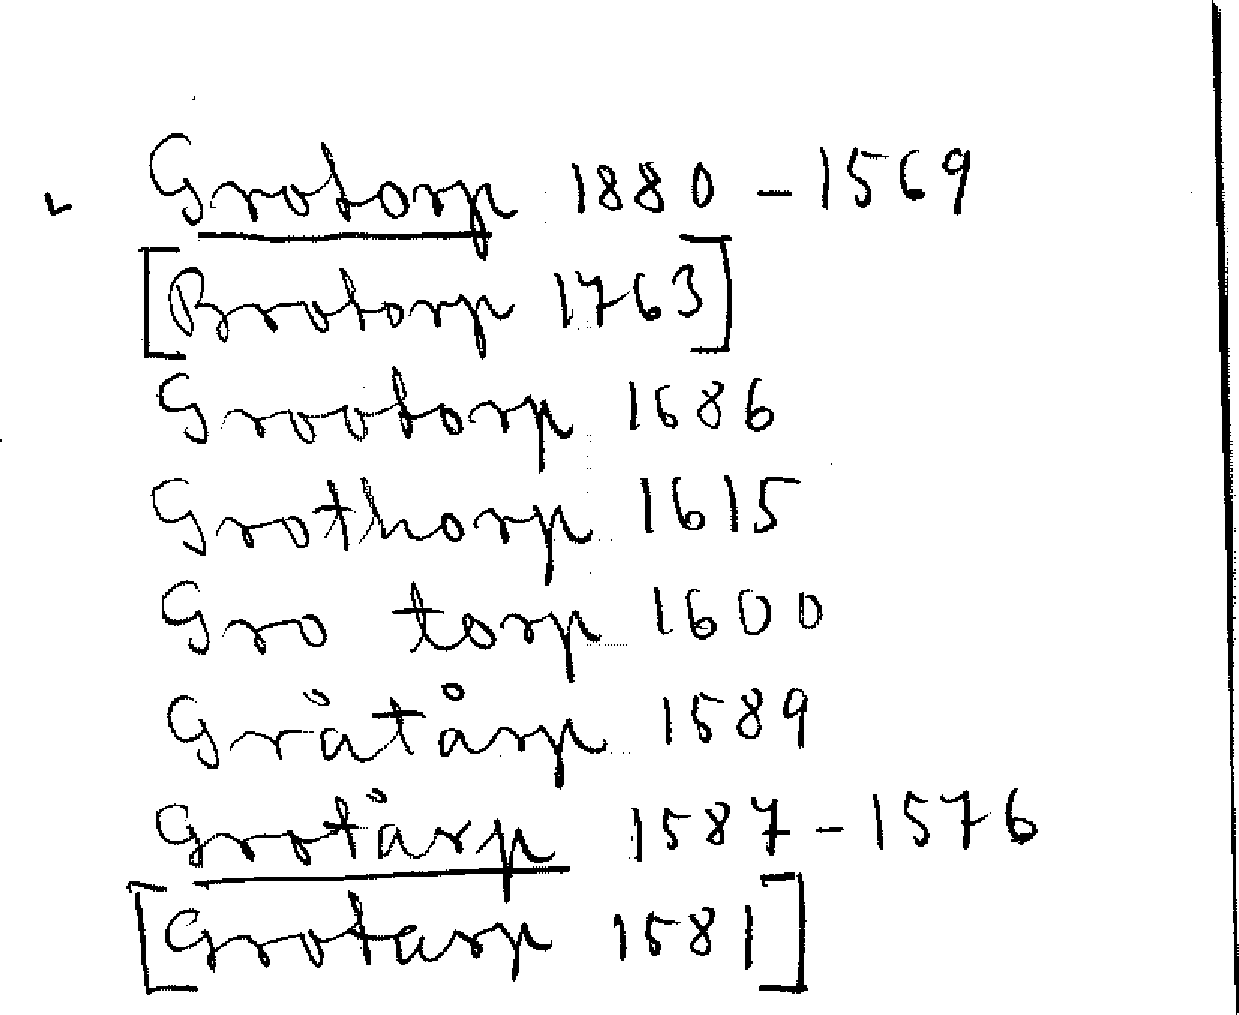 Grotorp 1880 - 1569
[Brotorp 1763]
Grootorp 1686
Grothorp 1615
Gro torp 1600
Gråtårp 1589
Grotårp 1587 - 1576
[Grotarp 1581]